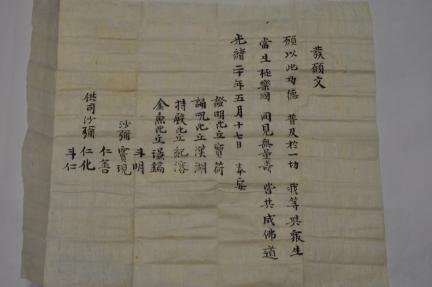 發願文
願以此功德 普及於一切 我等與衆生
當生極樂國 同見無量壽 皆共成佛道
光緒二十年五月十七日 奉安
證明比丘 寶荷
誦呪比丘 漢湖
持殿比丘
金魚比丘
斗明
沙彌 實現
仁善
供司沙彌 仁化
斗仁